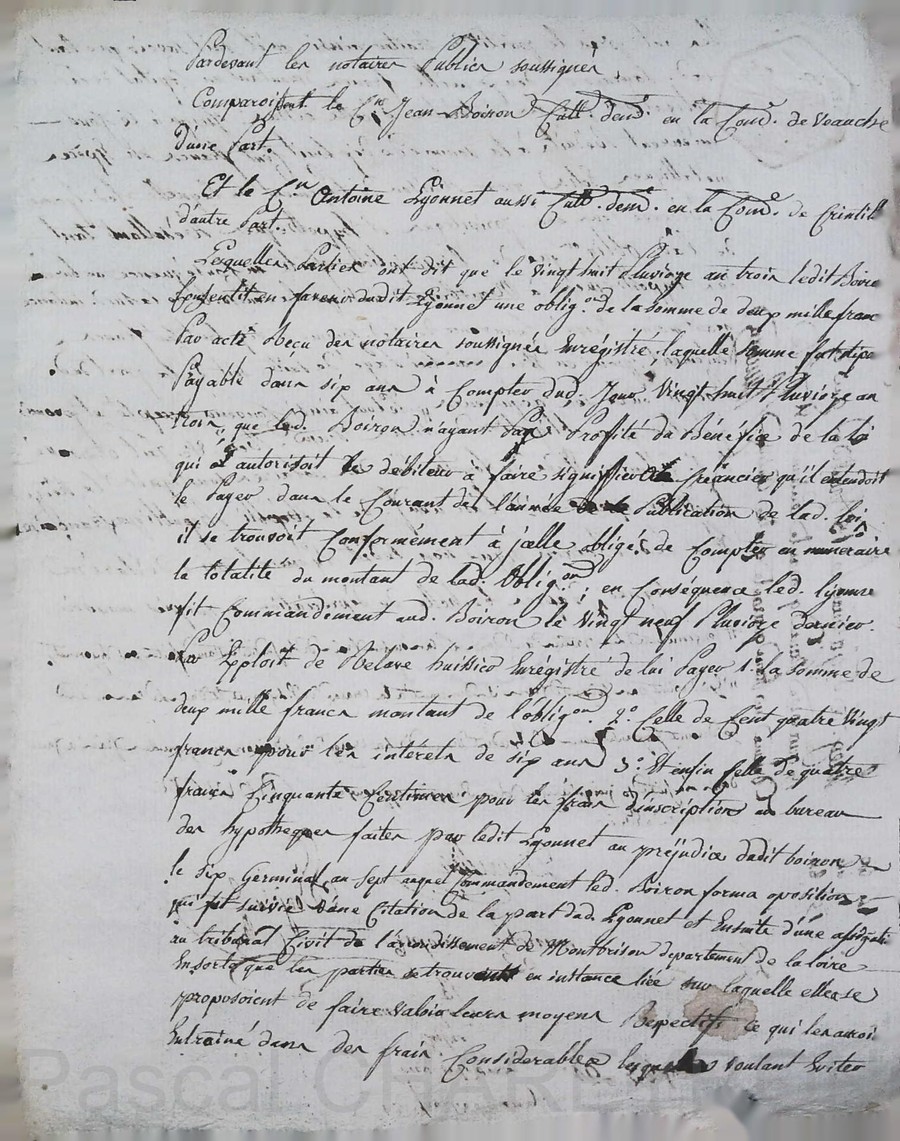 Pardevant les notaires Publics soussignés
Comparoissent le Cen Jean Boiron Cult. demt. en la Come. de Veauche
D'une Part.
Et le Cen Antoine Lyonnet aussi Cult. demt. en la Come. de
d'autre Part.
Lesquelles Parties ont dit que le vingt huit Pluviose an trois ledit Boiron
Consentit en faveur dudit Lyonnet une oblig.on de la somme de deux mille franc
Par acte Reçu des notaires soussignés Enrégistré, laquelle somme fut stipé
Payable dans six ans à Compter dud. Jour Vingt huit Pluviose an
trois, que led. Boiron n'ayant Pas Profité du Bénéfice de la loi
qui autorisoit le débiteur à faire signiffier au Créancier qu'il entendoit
le Payer dans le Courant de l'année Publication de lad. loi,
il se trouvoit Conformement à icelle obligé de Compter en numeraire
la totalité du montant de lad. Obligon; en Conséquence led. Lyonnet
fit Commandement aud. Boiron le Vingt neuf Pluviose dernier.
Par Exploit de huissier Enrégistré de lui Payer 1.° la somme de
deux mille francs montant de l'obligon. 2.° Celle de Cent quatre Vingt
francs pour les intérets de six ans 3.° Et enfin Celle de quatre
francs Cinquante Centimes pour les frais d'inscription au bureau
des hypotheques faites par ledit Lyonnet au préjudice dudit boiron
le six Germinal an sept auquel Commandement led. Boiron forma oposition
qui fut suivie d'une Citation de la part dud. Lyonnet et Ensuite d'une
au tribunal Civil de l'arondissement de Montbrison departement de la loire
Ensorte que les parties se trouvent en instance liée sur laquelle elles se
proposoient de faire valoir leurs moyens Respectifs Ce qui les auroi
Entrainé dans des frais Considerables lesquels voulant Eviter
Pascal